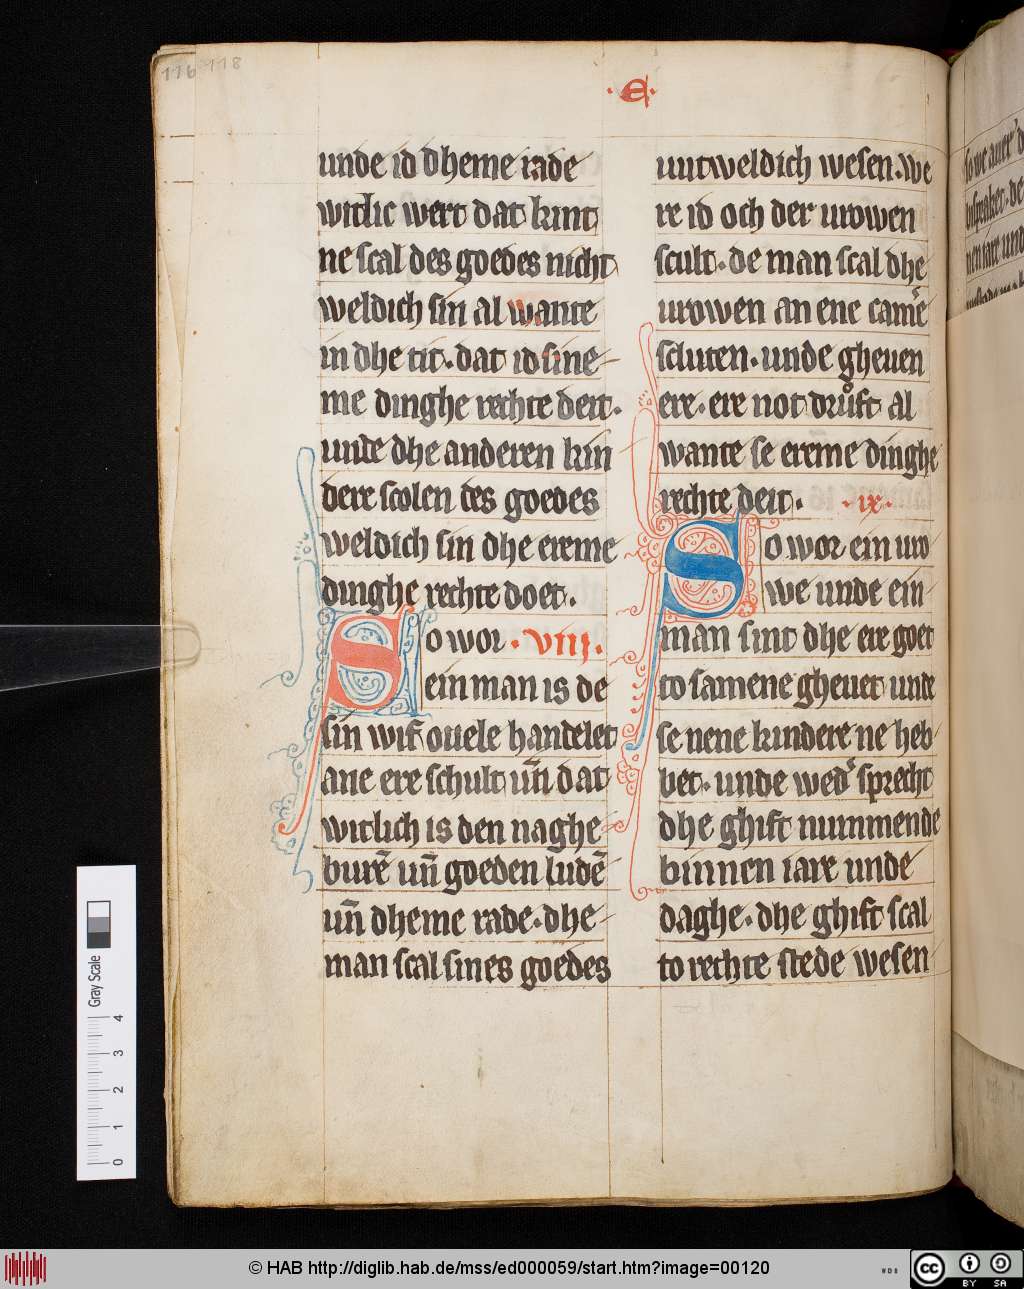 116 118
·E·
unde id dheme rade
witlic wert dat kint
ne scal des goedes nicht
weldich sin al wante
in dhe tit· dat id sine
me dinghe rechte deit·
unde dhe anderen kin
dere scolen des goedes
weldich sin dhe ereme
dinghe rechte doet·
So wor ·VIII·
ein man is de
sin wif ouele handelet
ane ere schult un̄ dat
witlich is den naghe
burē un̄ goeden ludē
un̄ dheme rade· dhe
man scal sines goedes
unweldich wesen· We
re id och der urowen
scult· de man scal dhe
urowen an ene camē
scluten· unde gheuen
ere· ere not druͦft al
wante se ereme dinghe
rechte deit· ·ix·
So wor ein uro
we unde ein
man sint dhe ere goet
to samene gheuet unde
se nene kindere ne heb
bet· unde wed' sprecht
dhe ghift nummende
binnen iare unde
daghe· dhe ghift scal
to rechte stede wesen
Gray Scale
0 1 2 3 4
© HAB http://diglib.hab.de/mss/ed000059/start.htm?image=00120
WDB
cc BY SA